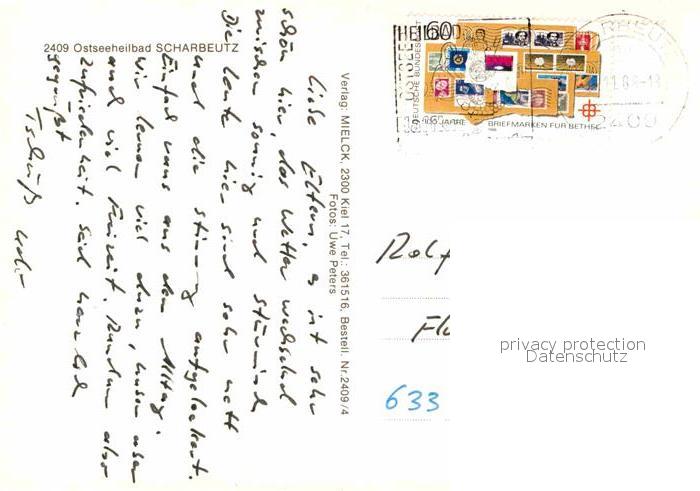 2409 Ostseeheilbad SCHARBEUTZ
Liebe Eltern, es ist sehr
schön hier, das Wetter wechselnd
zwischen sonnig und stürmisch
Die Leute hier sind sehr nett
und die Stimmung aufgelockert.
Einfach raus aus dem Alltag.
Wir lernen viel dazu, haben aber
auch viel Freizeit. Rundum also
Zufriedenheit. Seid herzlich
gegrüßt
Tschüß
Verlag: MIELCK, 2300 Kiel 17, Tel.: 361516, Bestell. Nr. 2409/4
Fotos: Uwe Peters
HEILBAD
60
DEUTSCHE BUNDESPOST
JAHRE BRIEFMARKEN FÜR BETHEL
Rolf
Fl
633
privacy protection
Datenschutz